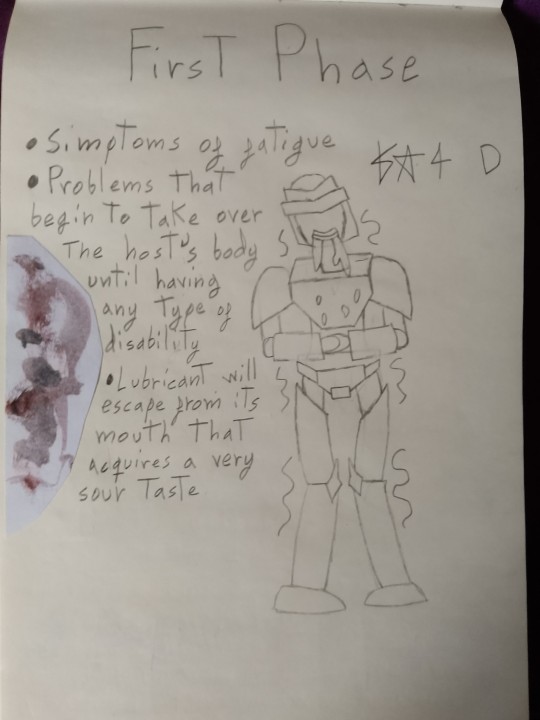 First Phase
• Simptoms of fatigue
• Problems that
begin to take over
the host's body
until having
any type of
disability
• Lubricant will
escape from its
mouth that
acquires a very
sour taste